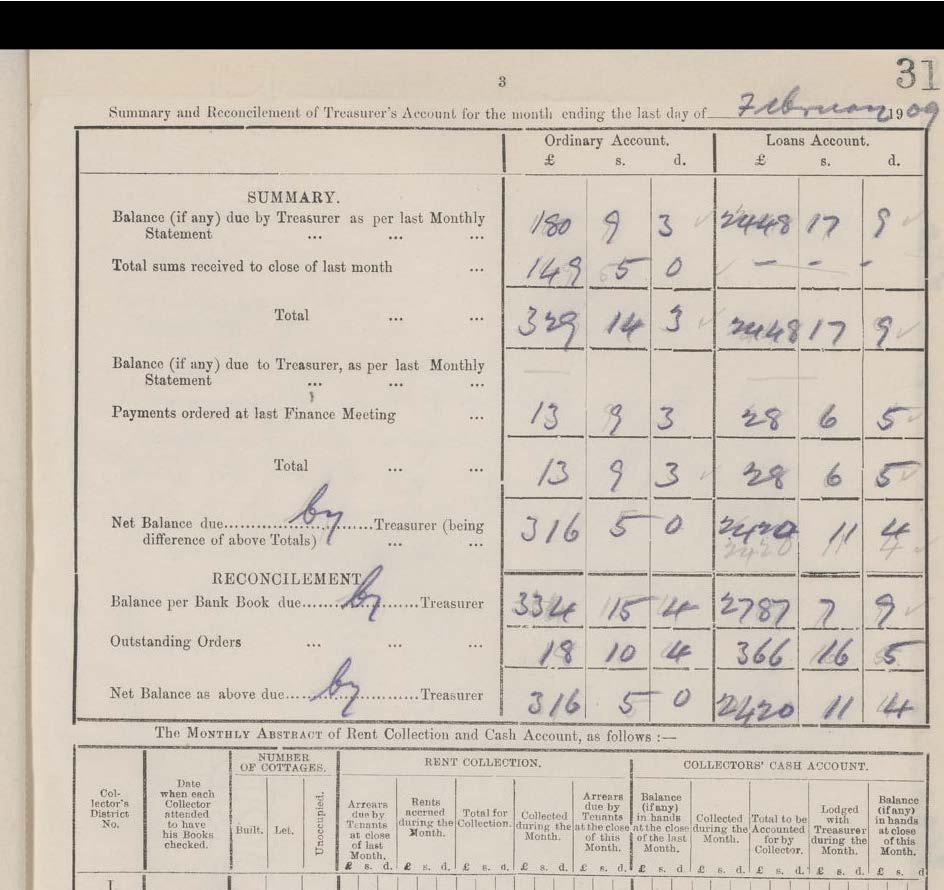 3
31
Summary and Reconcilement of Treasurer's Account for the month ending the last day of February 1909
Ordinary Account. Loans Account.
£ s. d. £ s. d.
SUMMARY.
Balance (if any) due by Treasurer as per last Monthly
Statement ... ... ... 180 9 3 2448 17 9
Total sums received to close of last month ... 149 5 0 - - -
Total ... ... 329 14 3 2448 17 9
Balance (if any) due to Treasurer, as per last Monthly
Statement ... ... ...
Payments ordered at last Finance Meeting ... 13 9 3 28 6 5
Total ... ... 13 9 3 28 6 5
Net Balance due by Treasurer (being 316 5 0 2420 11 4
difference of above Totals) ... ... 2420 11 4
RECONCILEMENT
Balance per Bank Book due by Treasurer 334 15 4 2787 7 9
Outstanding Orders ... ... ... 18 10 4 366 16 5
Net Balance as above due by Treasurer 316 5 0 2420 11 4
The MONTHLY ABSTRACT of Rent Collection and Cash Account, as follows :—
Collector's District No.
Date when each Collector attended to have his Books checked.
NUMBER OF COTTAGES.
Built. Let. Unoccupied.
RENT COLLECTION.
Arrears due by Tenants at close of last Month. £ s. d.
Rents accrued during the Month. £ s. d.
Total for Collection. £ s. d.
Collected during the Month. £ s. d.
Arrears due by Tenants at the close of this Month. £ s. d.
COLLECTORS' CASH ACCOUNT.
Balance (if any) in hands at the close of the last Month. £ s. d.
Collected during the Month. £ s. d.
Total to be Accounted for by Collector. £ s. d.
Lodged with Treasurer during the Month. £ s. d.
Balance (if any) in hands at close of this Month. £ s. d